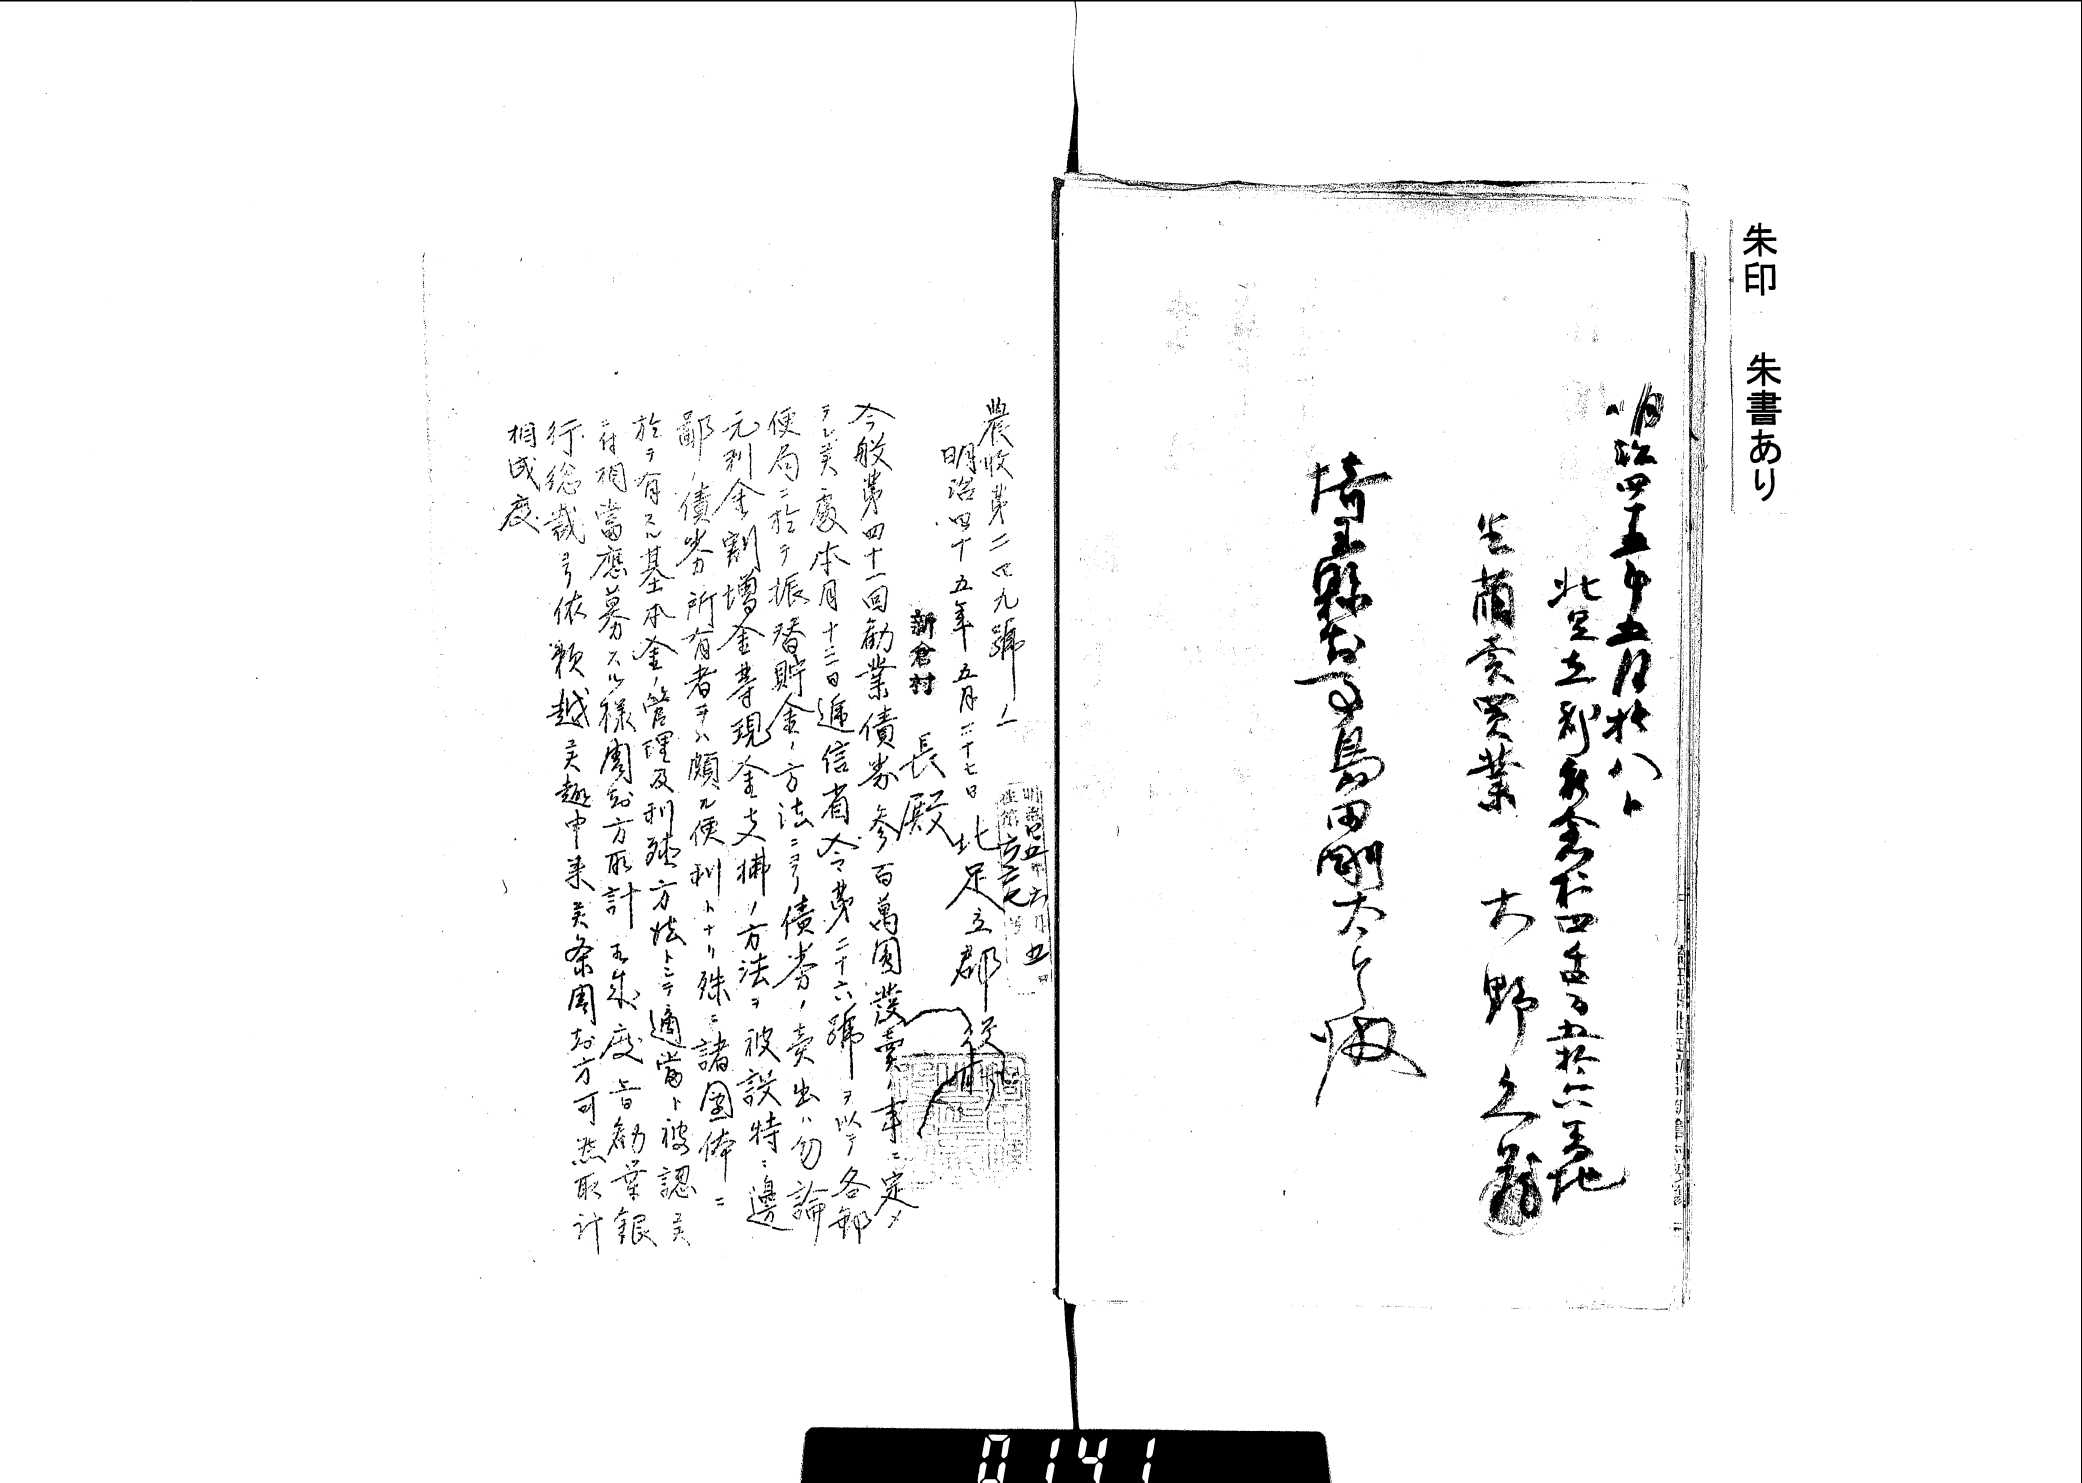 朱印　朱書あり
明治四十五年五月廿八日
北足立郡新倉村四千五百五拾六番地
生繭売買業　大野久蔵
埼玉縣知事島田剛太郎殿
農收第二四九號ノ一
明治四十五年五月二十七日　北足立郡役所
新倉村長殿
今般第四十一回勧業債券参百萬圓發賣ノ事ニ定メ
ラレ候處本月十三日逓信省令第二十六號ヲ以テ各郵
便局ニ於テ振替貯金ノ方法ニヨリ債券ノ賣出ハ勿論
元利金割増金等現金支拂ノ方法ヲ被設特ニ邊
鄙ノ債券所有者ヲハ頗ル便利トナリ殊ニ諸團体ニ
於テ有スル基本金ノ管理及利殖方法トシテ適當ト被認候
ニ付相當應募スル様周知方取計相成度旨勧業銀
行総裁ヨリ依頼越候趣申来候条周知方可然取計
相成度
0141